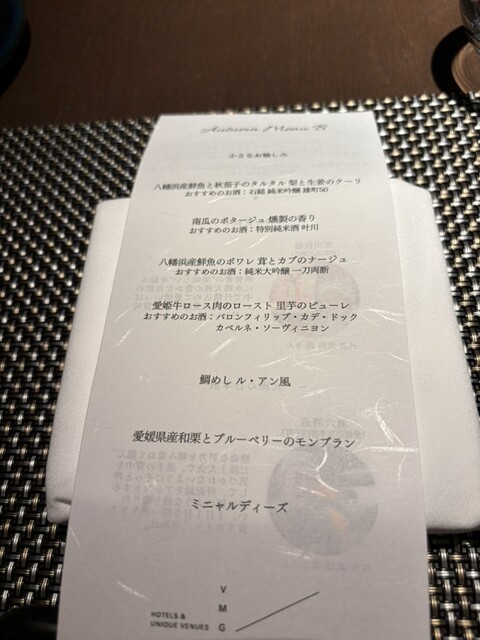 Autumn Menu B
小さなお愉しみ
八幡浜産鮮魚と秋茄子のタルタル 梨と生姜のクーリ
おすすめのお酒：石鎚 純米吟醸 雄町50
南瓜のポタージュ 燻製の香り
おすすめのお酒：特別純米酒 叶川
八幡浜産鮮魚のポワレ 茸とカブのナージュ
おすすめのお酒：純米大吟醸 一刀両断
愛姫牛ロース肉のロースト 里芋のピューレ
おすすめのお酒：バロンフィリップ・カデ・ドック
カベルネ・ソーヴィニヨン
鯛めし ル・アン風
愛媛県産和栗とブルーベリーのモンブラン
ミニャルディーズ
HOTELS &
UNIQUE VENUES
V
M
G